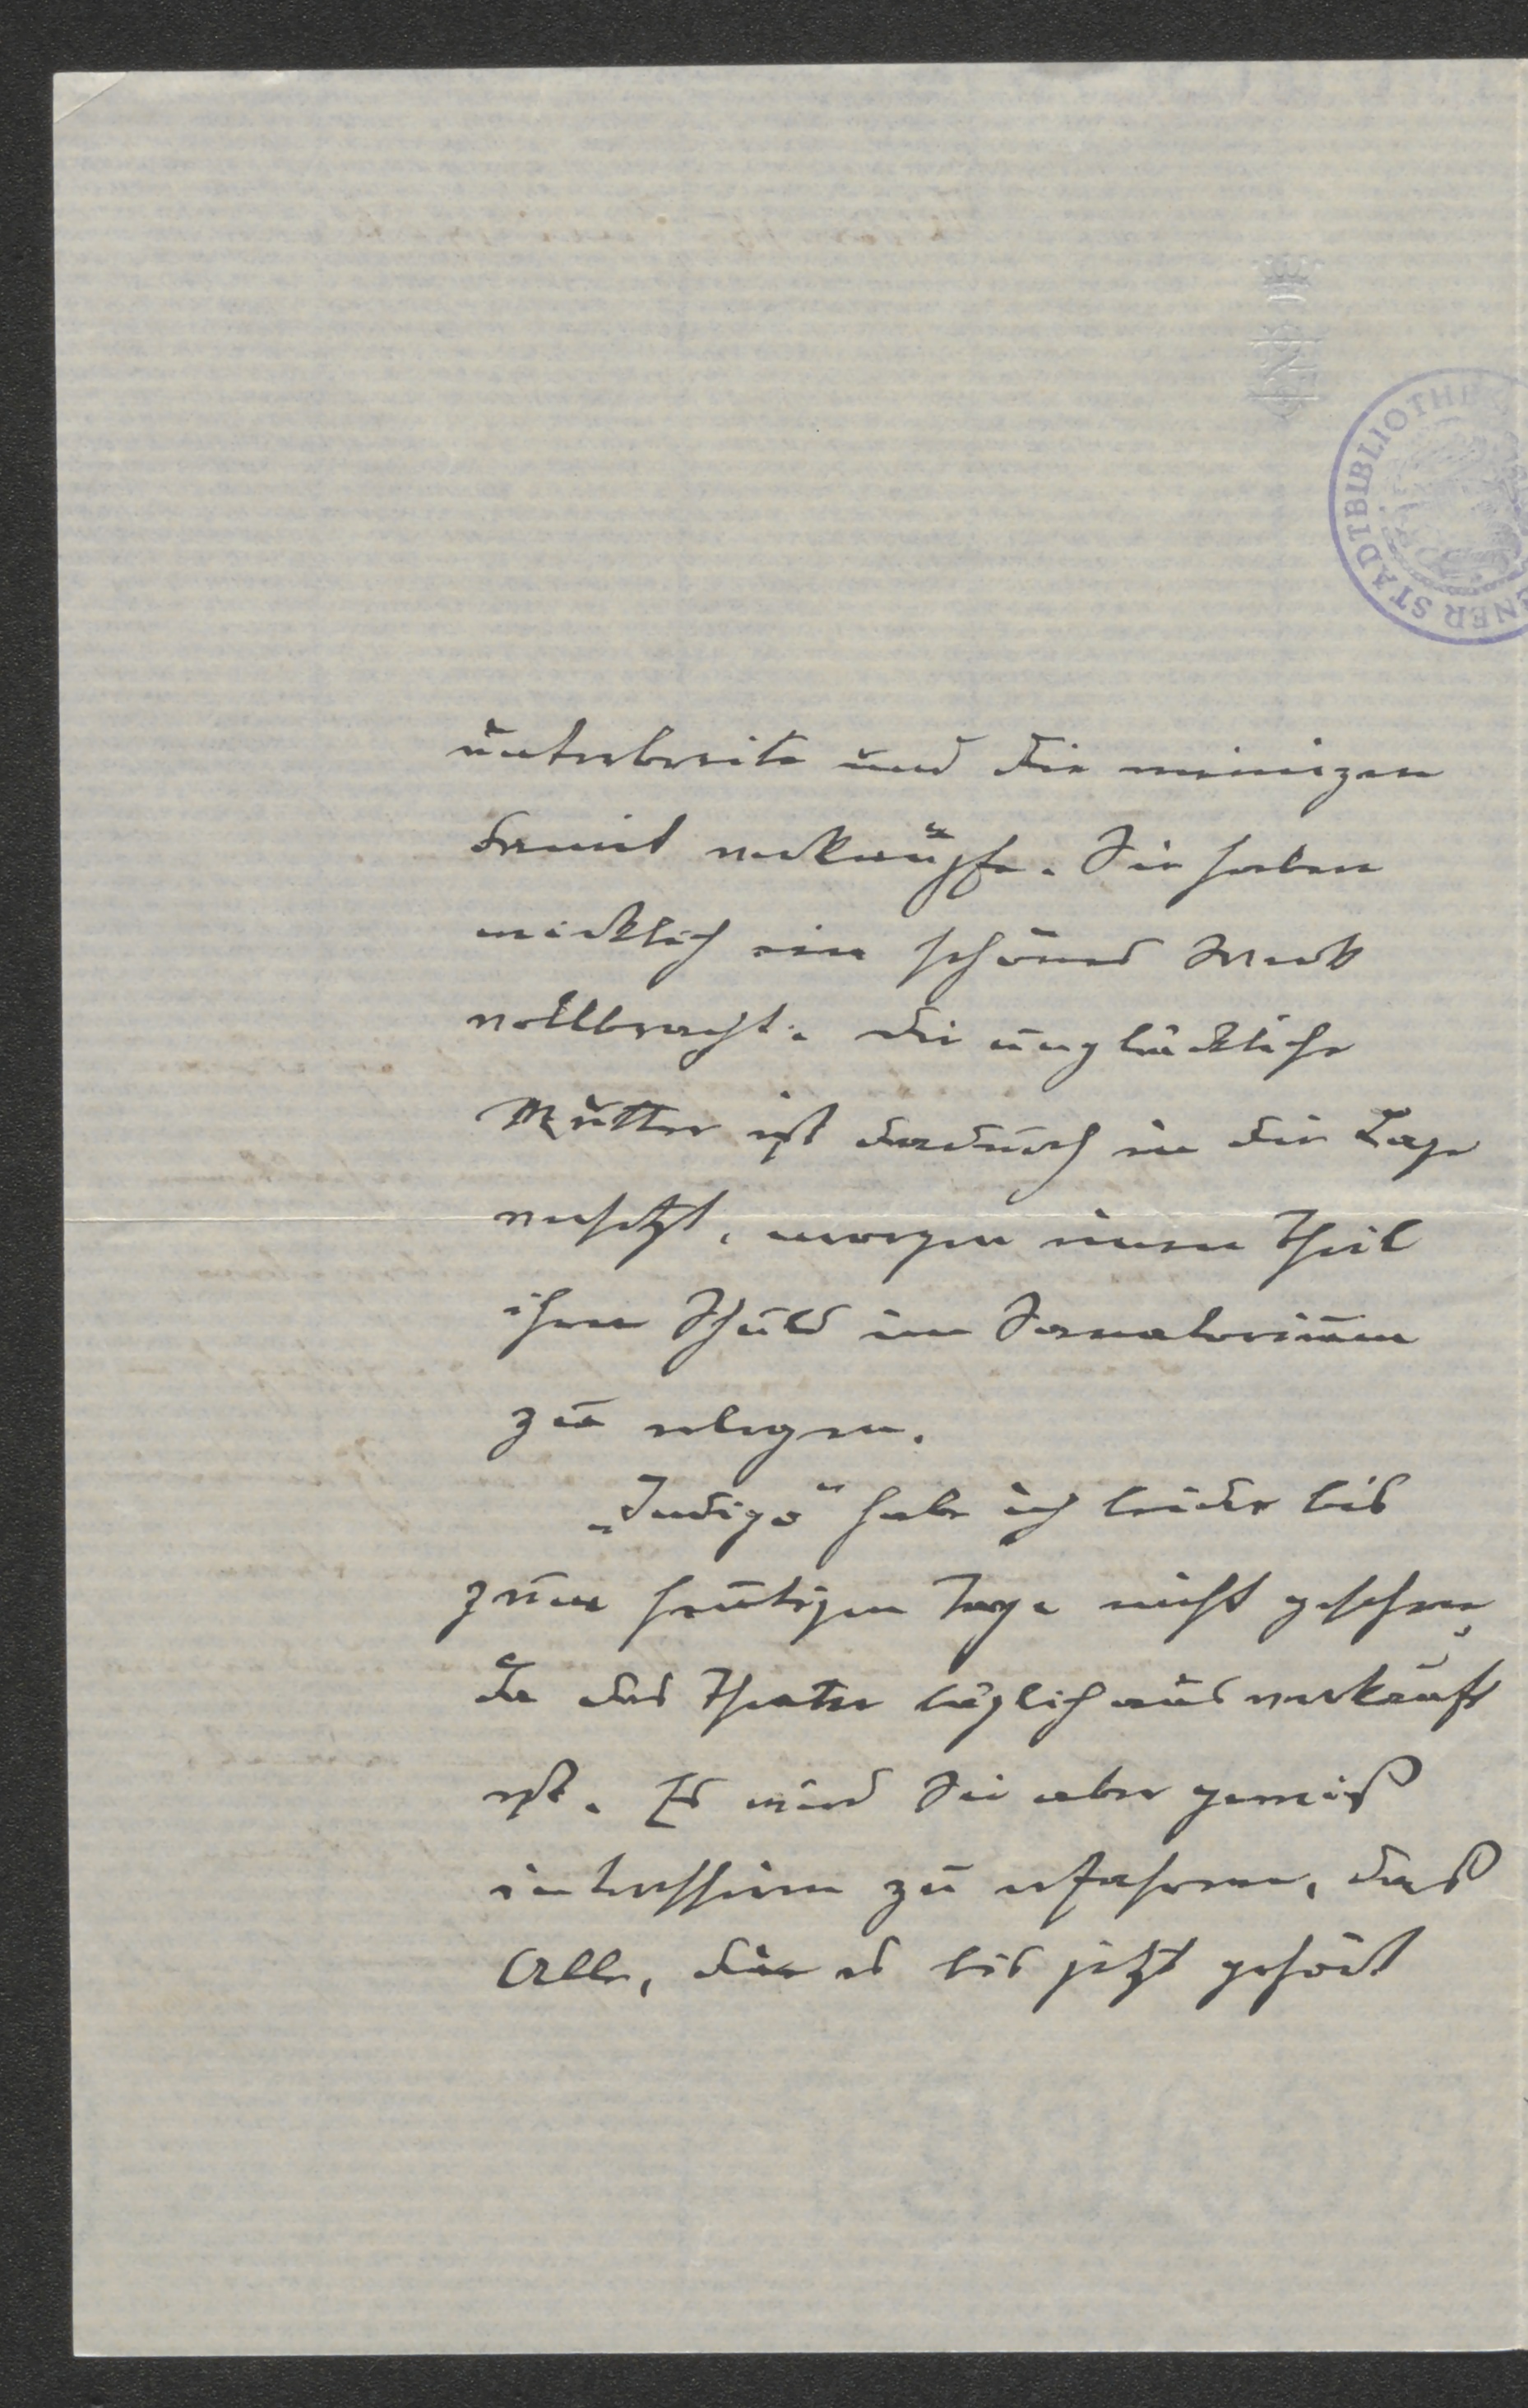 STADTBIBLIOTHE
NER
unterbreite und die meinigen
damit verknüpfe. Sie haben
wirklich ein schönes Werk
vollbracht. Die unglückliche
Mutter ist dadurch in die Lage
versetzt, morgen einen Theil
ihrer Schuld im Sanatorium
zu erlegen.
„Indigo“ habe ich leider bis
zum heutigen Tage nicht gesehen,
da das Theater täglich ausverkauft
ist. Es wird Sie aber gewiß
interessiren zu erfahren, daß
Alle, die es bis jetzt gehört